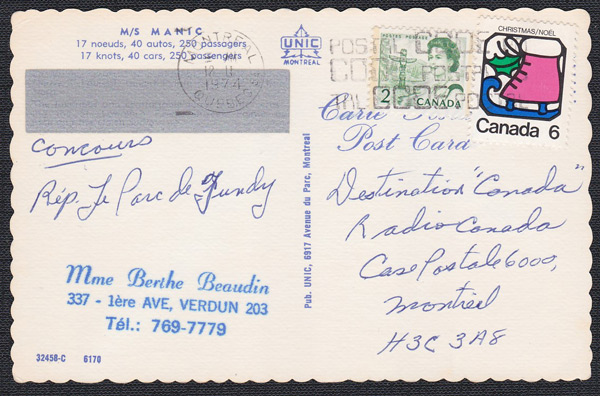 M/S MANIC
17 noeuds, 40 autos, 250 passagers
17 knots, 40 cars, 250 passengers
UNIC
MONTREAL
MONTREAL
1974
QUEBEC
POSTES POSTAGE
2
CANADA
CHRISTMAS/NOËL
Canada 6
POSTAL CODE
CODE POSTAL
THE CODE POSTAL
Carte Postale
Post Card
concours
Rép. Le Parc de Fundy
Mme Berthe Beaudin
337 - 1ère AVE, VERDUN 203
Tél.: 769-7779
32458-C 6170
Pub. UNIC, 6917 Avenue du Parc, Montreal
Destination "Canada"
Radio Canada
Case Postale 6000,
Montréal
H3C 3A8